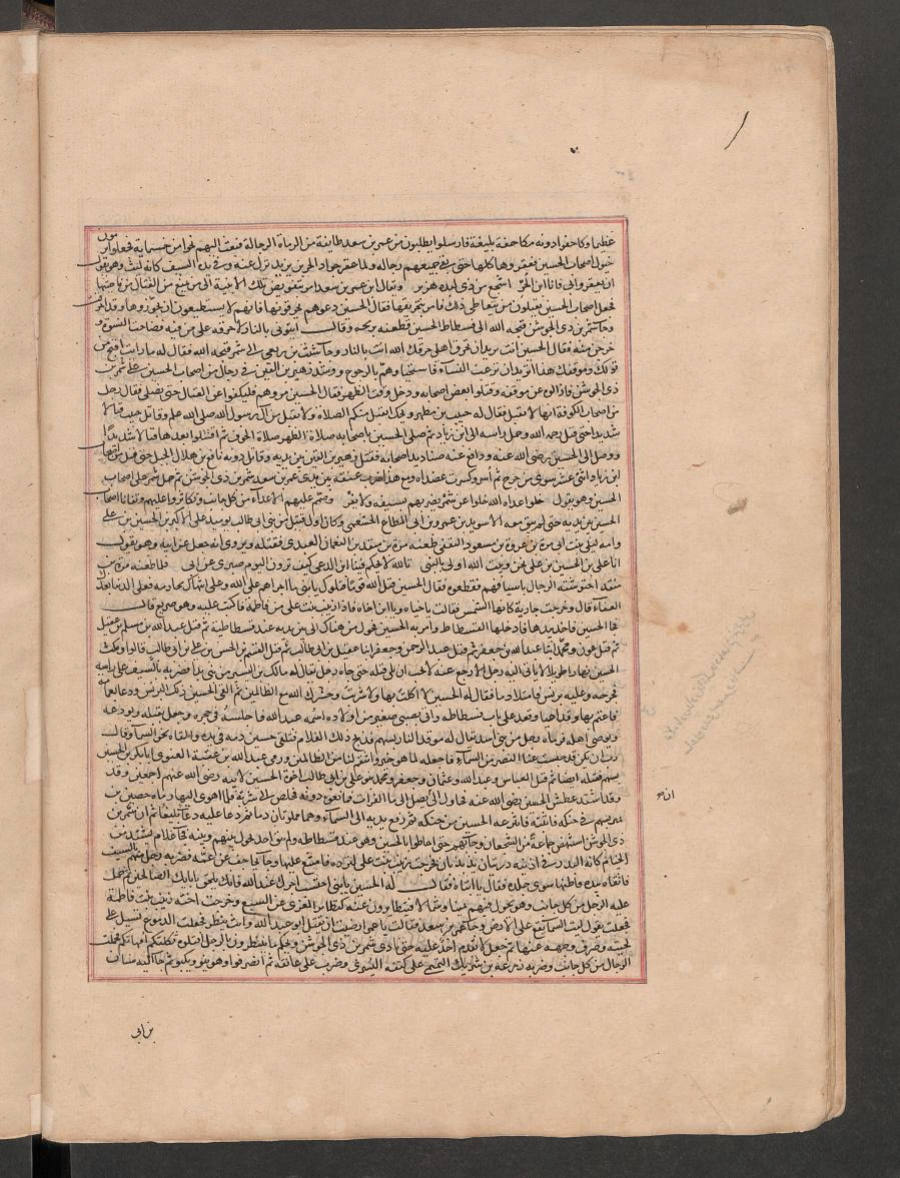 عظيما وكافحوا دونه مكافحة بليغة فارسلوا يطلبون من عمر بن سعد طايفة من الرماة الرجالة فبعث اليهم نحوا من خمسماية فجعلوا يرمون
خيول اصحاب الحسين فعقروها كلها حتى بقي جميعهم رجاله ولما عقر جواد الحر بن يزيد نزل عنه وفي يده السيف كانه ليث وهو يقول
ان تعقروا بي فانا ابن الحر اشجع من ذي لبده هزبر وقال ان عمر بن سعد امر بتقويض تلك الابنية التي تمنع من القتال من ناحيتها
فجعل اصحاب الحسين يقتلون من يتعاطى ذلك فامر بتحريقها فقال الحسين دعوهم يحرقونها فانهم لا يستطيعون ان يجوزوها وقد احرقت
وجا شمر بن ذي الجوشن قبحه الله الى فسطاط الحسين فطعنه برمحه وقال ايتوني بالنار لاحرقه على من فيه فصاحت النسوة و
خرجن منه فقال الحسين انت تريد ان تحرق اهلي احرقك الله انت بالنار وجا شبث بن ربعي الى شمر قبحه الله فقال له ما رايت اقبح من
قولك وموقفك هذا اتريد ان ترعب النساء فاستحيا وهم بالرجوع وشد زهير بن القين في رجال من اصحاب الحسين على شمر بن
ذي الجوشن فازالوه عن موقفه وقتلوا بعض اصحابه ودخل وقت الظهر فقال الحسين مروهم فليكفوا عن القتال حتى نصلي فقال رجل
من اصحاب الكوفة انها لا تقبل فقال له حبيب بن مطهر ويحك اتقبل منكم الصلاة ولا تقبل من آل رسول الله صلى الله عليه وقاتل حبيب قتالا
شديدا حتى قتل رحمه الله وحمل راسه الى ابن زياد ثم صلى الحسين باصحابه صلاة الظهر صلاة الخوف ثم اقتتلوا بعدها قتالا شديدا
ووصل الى الحسين رضي الله عنه ودافع عنه صناديد اصحابه فقتل زهير بن القين بين يديه وقاتل دونه نافع بن هلال الجملي حتى قتل من اصحاب
ابن زياد اثني عشر سوى من جرح ثم أسر وكسرت عضداه ومع هذا ضرب عنقه بين يدي عمر بن سعد شمر بن ذي الجوشن ثم حمل شمر على اصحاب
الحسين وهو يقول خلوا عداة الله خلوا عن شمر يضربهم بسيفه ولا يفر وصمم عليهم الاعداء من كل جانب وتكاثروا عليهم وتفانا اصحاب
الحسين بين يديه حتى لم يبق معه الا سويد بن عمرو بن ابي المطاع الخثعمي وكان اول قتيل من بني ابي طالب يوميذ علي الاكبر بن الحسين بن علي
وامه ليلى بنت ابي مرة بن عروة بن مسعود الثقفي طعنه مرة بن منقذ بن النعمان العبدي فقتله ويروى انه جعل عن ابيه وهو يقول
انا علي بن الحسين بن علي نحن وبيت الله اولى بالنبي تالله لا يحكم فينا ابن الدعي كيف ترون اليوم صبري عن ابي فلما طعنه مرة بن
منقذ احتوشته الرجال باسيافهم فقطعوه فقال الحسين قتل الله قوما قتلوك يا بني ما اجراهم على الله وعلى انتهاك محارمه فعلى الدنيا بعدك
العفاء قال وخرجت جارية كانها الشمس فقالت يا خياه ويا ابن اخاه فاذا زينب بنت علي من فاطمة فاكبت عليه وهو صريع قال
فجا الحسين فاخذ بيدها فادخلها الفسطاط وامر به الحسين فحول من هناك الى بين يديه عند فسطاطه ثم قتل عبدالله بن مسلم بن عقيل
ثم قتل عون ومحمد ابنا عبدالله بن جعفر ثم قتل عبد الرحمن وجعفر ابنا عقيل بن ابي طالب ثم قتل القسم بن الحسن بن علي بن ابي طالب قالوا ومكث
الحسين نهارا طويلا لا ياتي اليه رجل الا رجع عنه لا يحب ان يلي قتله حتى جاه رجل يقال له مالك بن النسير من بني بدا فضربه بالسيف على راسه
فجرحه وعليه برنس فامتلا دما فقال له الحسين لا اكلت بها ولا شربت وحشرك الله مع الظالمين ثم القى الحسين ذلك البرنس ودعا بعمامه
فاعتم بها وقد اعيا وقعد على باب فسطاطه واتي بصبي صغير من اولاده اسمه عبدالله فاجلسه في حجره وجعل يقبله ويودعه
ويوصي اهله فرماه رجل من بني اسد يقال له موقد النار بسهم فذبح ذلك الغلام فتلقى حسين دمه في يده والقاه نحو السماء وقال
رب ان تكن قد حبست عنا النصر من السماء فاجعله لما هو خير وانتقم لنا من الظالمين ورمى عبدالله بن عقبة الغنوي ابا بكر بن الحسين
بسهم فقتله ايضا ثم قتل العباس وعبدالله وعثمان وجعفر ومحمد بنو علي بن ابي طالب اخوة الحسين لابيه رضي الله عنهم اجمعين وقد
وقد اشتد عطش الحسين رضي الله عنه فحاول الى يصل الى ماء الفرات فمانعوه دونه فخلص الى شربة فلما اهوى اليها رماه حصين بن
تميم بسهم في حنكه فاثبته فانتزعه الحسين من حنكه ثم رفع يديه الى السماء وهما مملوتان دما ثم دعا عليه دعا بليغا ثم ان شمر بن
ان هو
ذي الجوشن استبهض جماعة من الشجعان وجآبهم حتى احاطوا بالحسين وهو عند فسطاطه ولم يبق احد يحول بينهم وبينه فجآ غلام يشتد من
الخيام كانه البدر في اذنيه درتان تذبذبان فخرجت زينب بنت علي لترده فامتنع عليها وجآ يحاجف عن عمه فضربه رجل منهم بالسيف
فاتقاه بيده فاطنها سوى جلده فقال يا ابتاه فقال له الحسين يا بني احتسب اجرك عند الله فانك تلحق بابايك الصالحين ثم حمل
عليه الرجال من كل جانب وهو يجول فيهم يمينا وشمالا فيتطايرون عنه كتطاير المعزى عن السبع وخرجت اخته زينب بنت فاطمة
فجعلت تقول ليت السماء تقع على الارض وجا عمر بن سعد فقالت يا عمر ارضيت ان يقتل ابو عبد الله وانت تنظر فجعلت الدموع تسيل على
لحيته وصرف وجهه عنها ثم جعل لا يقدم احد عليه حتى نادى شمر بن ذي الجوشن ويحكم ما تنتظرون بالرجل اقتلوه ثكلتكم امهاتكم فحملت
الرجال من كل جانب وضربه زرعة بن شريك التميمي على كتفه اليسرى وضرب على عاتقه ثم انصرفوا وهو ينو ويكبو ثم جا اليه سنان
بن ابي